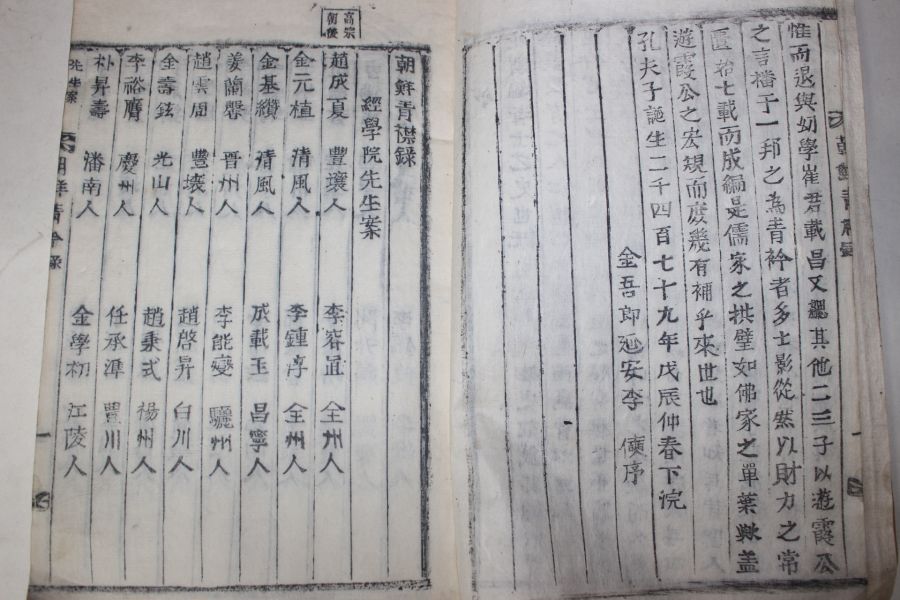 惟而退與幼學崔君載昌又羅其他二三子以遊霞公
之言播于一邦之為青衿者多士影從然以財力之常
匱拾七載而成編是儒家之拱璧如佛家之單葉歟盖
遊霞公之宏規而庶幾有補乎來世也
孔夫子誕生二千四百七十九年戊辰仲春下浣
金吾郎延安李 序
高宗
朝後
朝鮮青襟錄
經學院先生案
趙成夏 豐壤人 李容直 全州人
金元植 清風人 李鍾淳 全州人
金基纘 清風人 成載玉 昌寧人
姜蘭馨 晋州人 李能燮 驪州人
趙雲周 豐壤人 趙啓昇 白川人
金壽鉉 光山人 趙秉式 楊州人
李裕膺 慶州人 任承準 豊川人
朴昇壽 潘南人 金學初 江陵人
先生案 朝鮮青衿錄 一